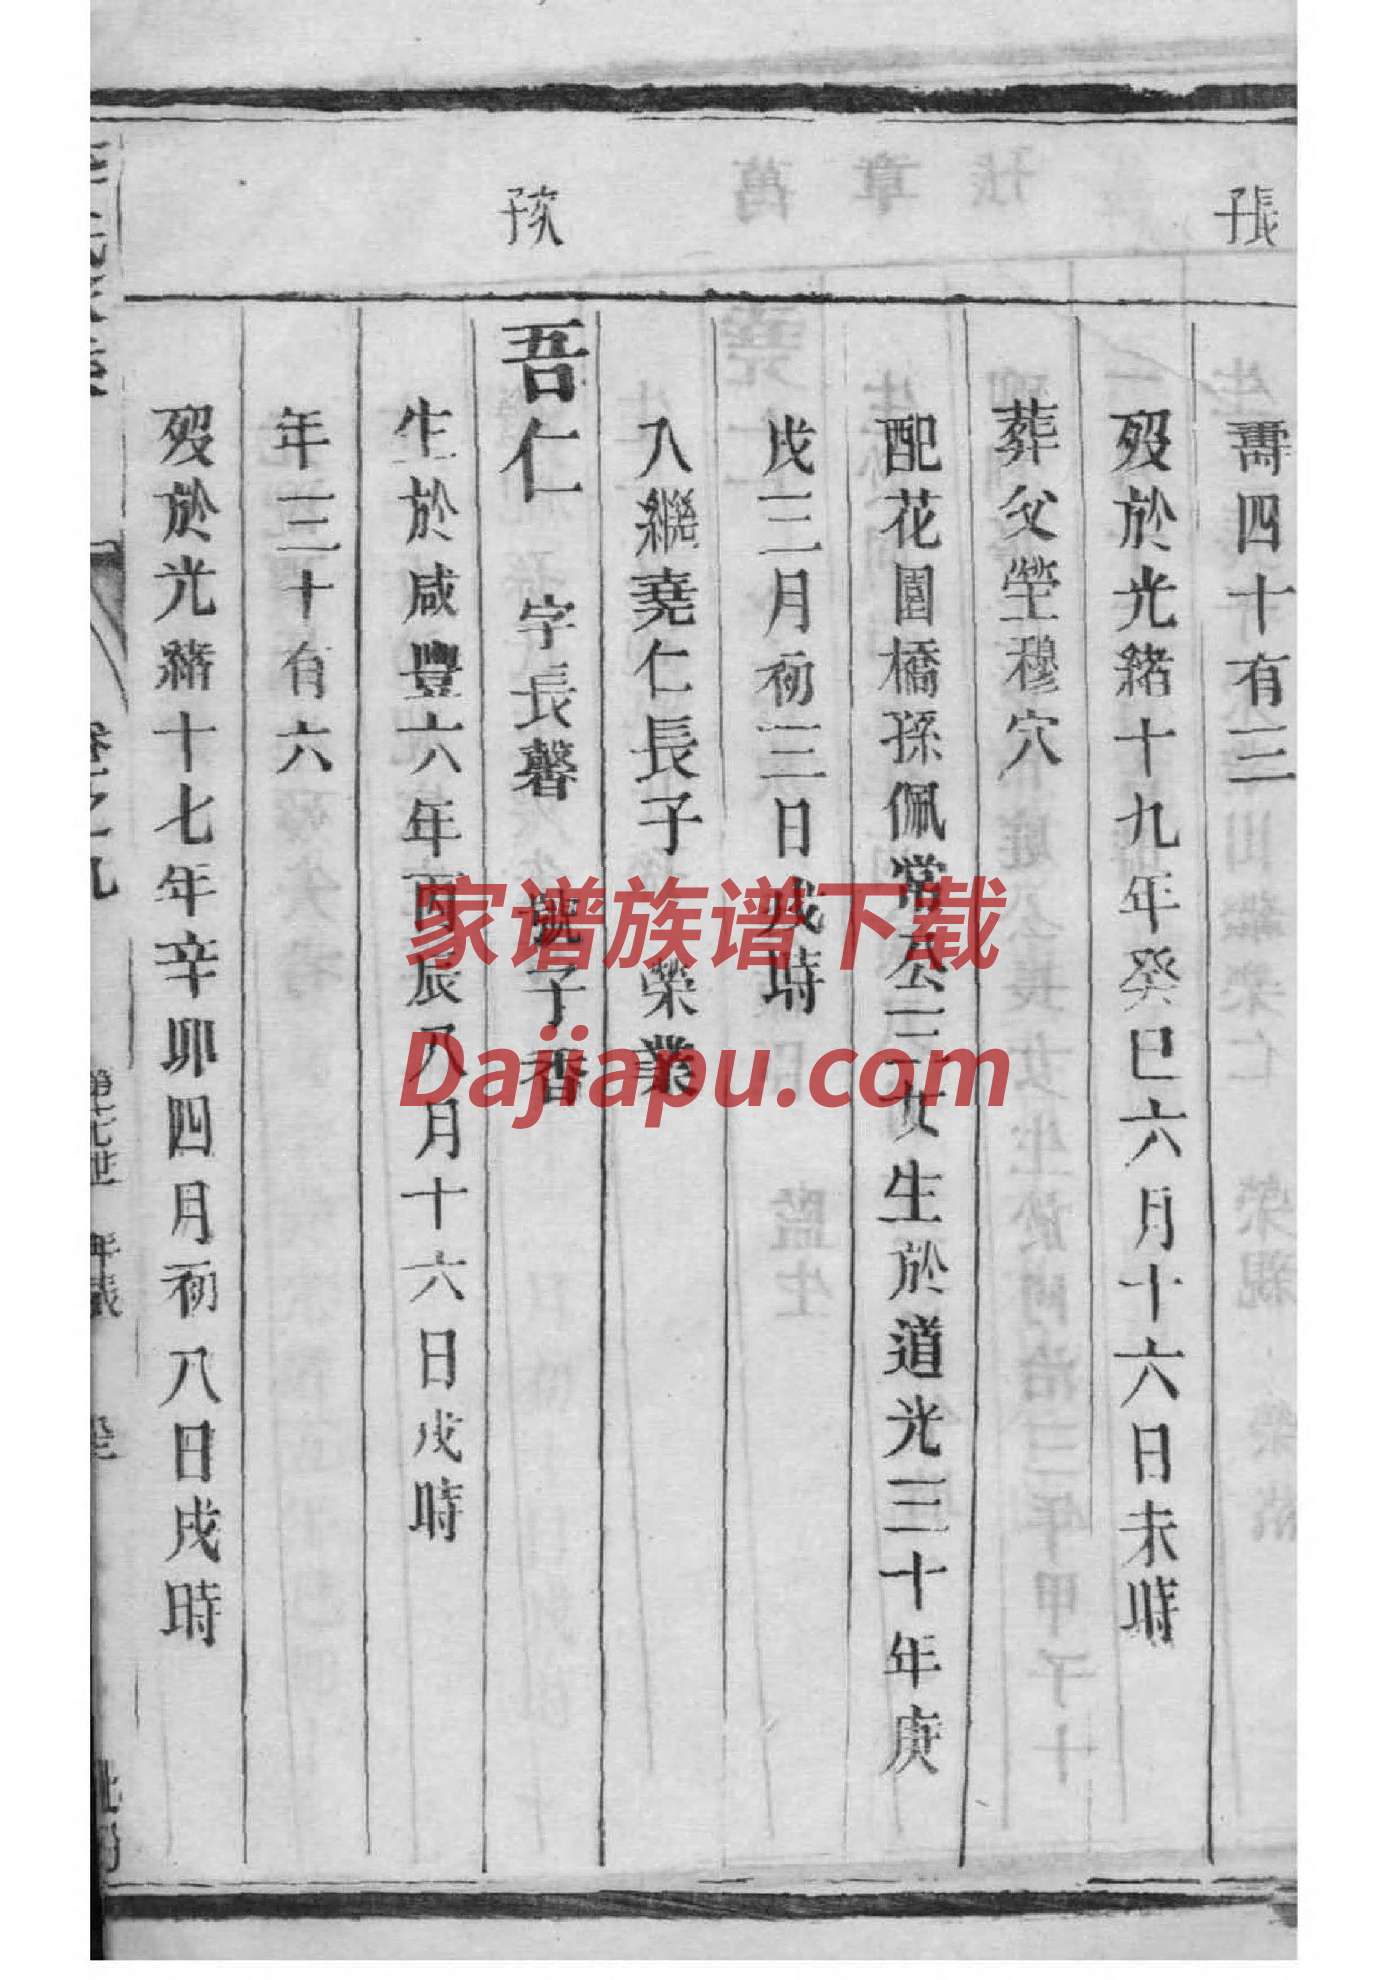 壽四十有三
歿於光緒十九年癸巳六月十六日未時
葬父塋穆穴
配花園橋孫佩常公三女生於道光三十年庚
戌三月初三日戌時
入繼堯仁長子 榮業
吾仁 字長馨 號子香
生於咸豐六年丙辰八月十六日戌時
年三十有六
歿於光緒十七年辛卯四月初八日戌時
卷之九
家谱族谱下载
Dajiapu.com